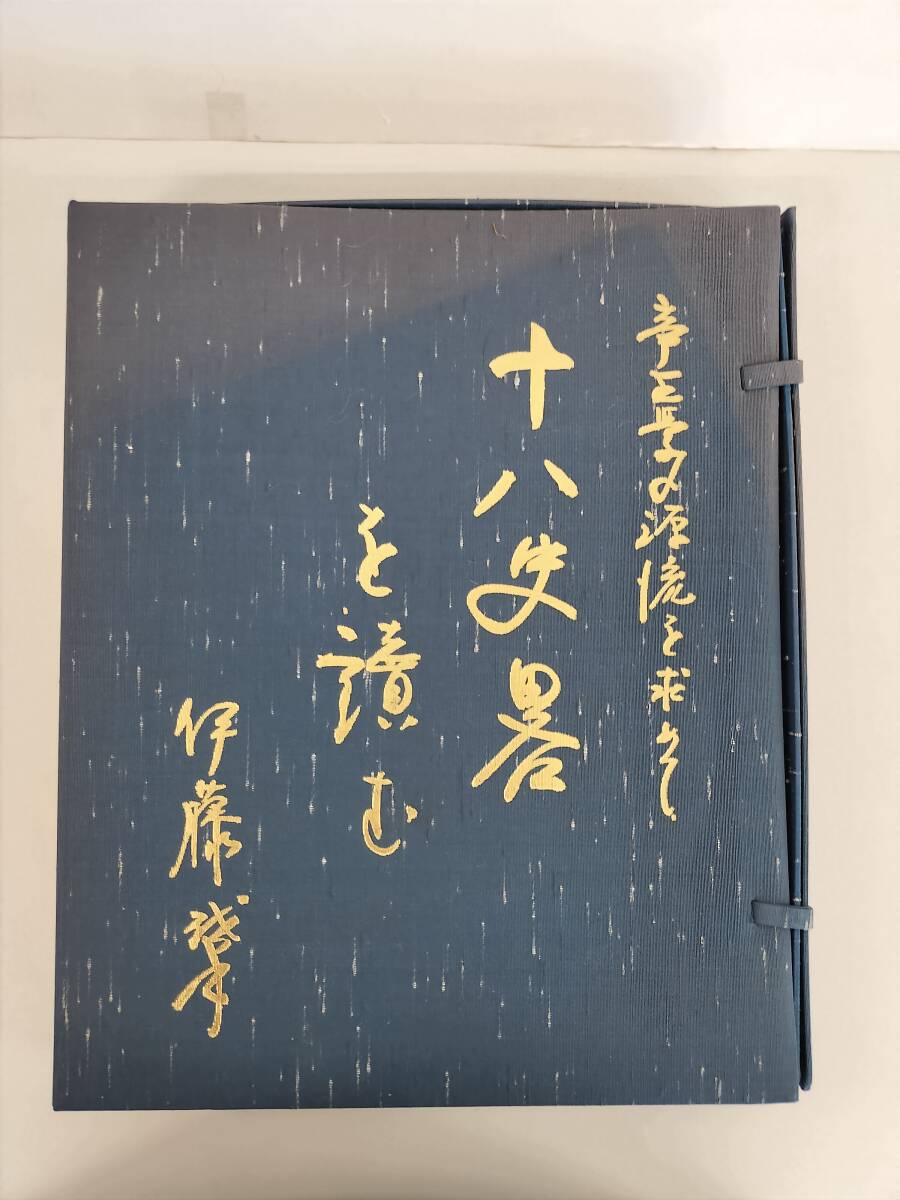 帝王学の源流を求めて
十八史畧
を讀む
伊藤肇